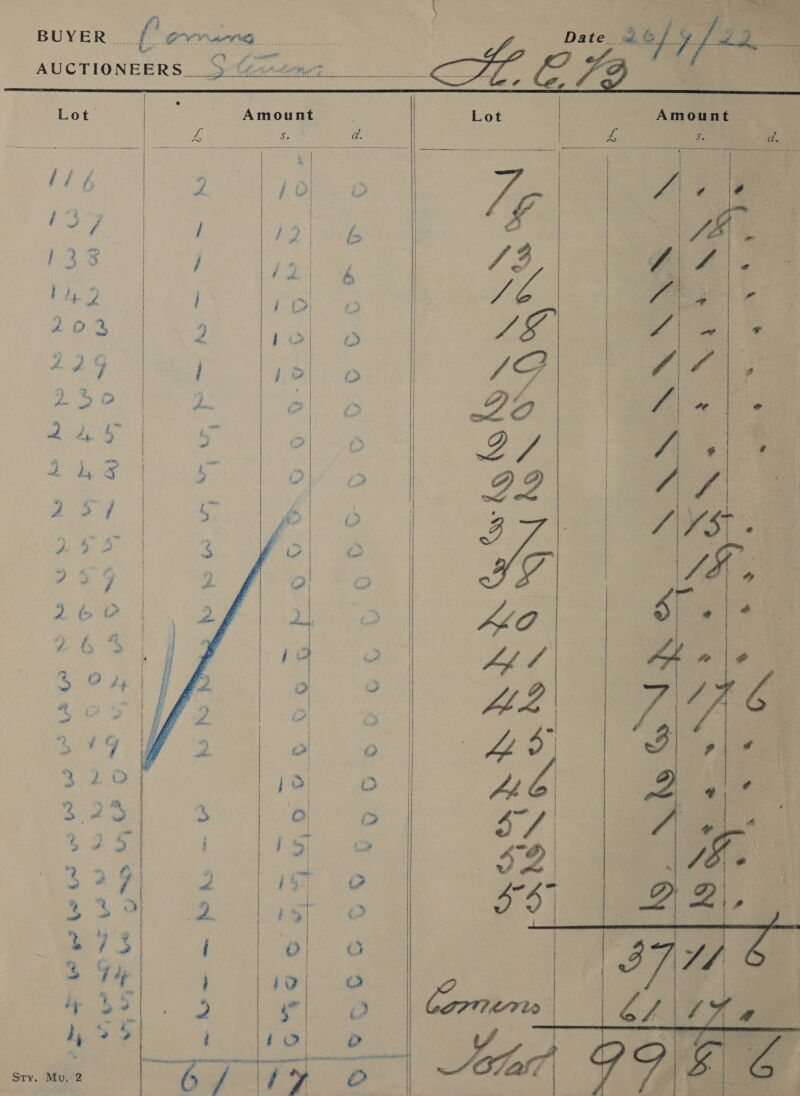 BUYER Coming Date 26/7/22
AUCTIONEERS Stevens H.E.B
Lot Amount Lot Amount
£ s. d. £ s. d.
116 2 10 0
137 1 12 6
138 1 12 6
142 1 10 0
203 2 10 0
229 1 10 0
230 2 0 0
245 5 0 0
248 5 0 0
251 5 0 0
255 3 0 0
259 2 0 0
260 2 2 0
263 10 0
304 2 0 0
305 2 0 0
319 2 0 0
320 10 0
323 3 0 0
325 1 15 0
329 2 15 0
330 2 15 0
373 1 0 0
394 1 10 0
435 2 5 0
455 1 10 0
61 17 0
7 1 . .
8 18 .
13 1 1 .
16 1 . .
18 1 . .
19 1 1 .
20 1 . .
21 1 . .
22 1 1
37 1 15 .
38 18 .
40 5 . .
41 4 . .
42 7 17 6
45 3 . .
46 2 . .
51 1 . .
52 18 .
55 2 2 .
37 11 6
61 17 .
Total 99 8 6
Sty. Mu. 2